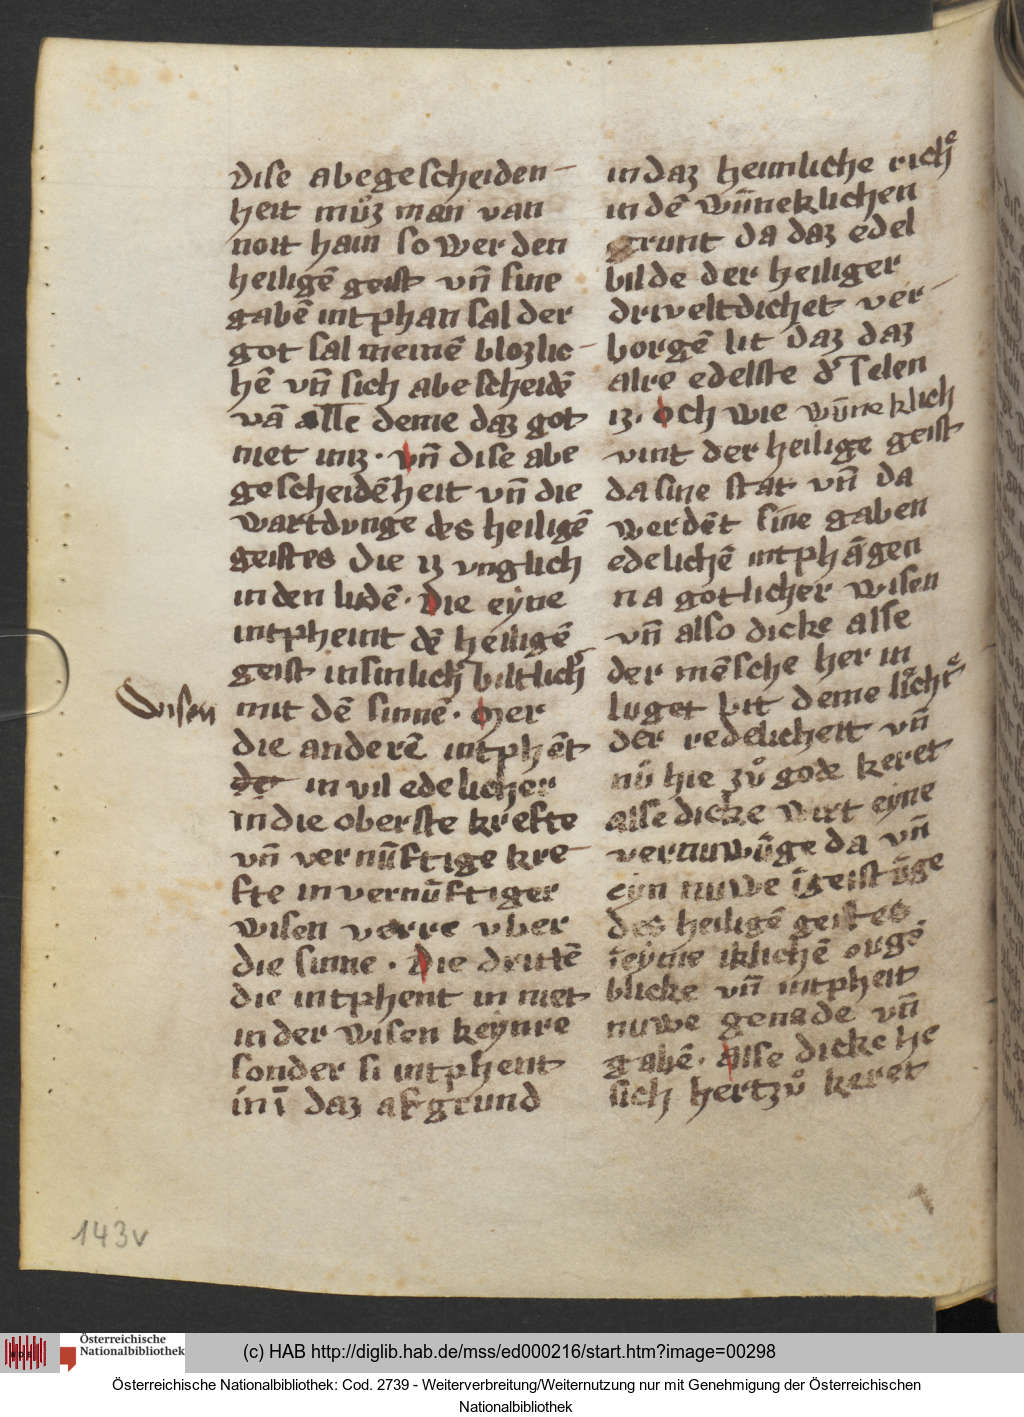 dise abegescheiden-
heit mu̓z man van
noit hain so wer den
heiligē geist vn̄ sine
gabē intphan sal der
got sal meinē blozlic-
hē vn̄ sich abe scheidē
vā alle deme daz got
niet iniz · vn̄ dise abe
gescheidēheit vn̄ die
wartdvnge des heiligē
geistes die iz vnglich
in den ludē · Die eyne
intpheint dē heiligē
geist in sinlichˀ biltlichˀ
wisen
mit dē sinnē · Mer
die anderē intphēt
in vil edelicher
in die oberste krefte
vn̄ vernūftige kre-
fte in vernūftiger
wisen verre vber
die sinne · Die drittē
die intphent in niet
in der wisen keynre
sonder si intphent
in ī daz afgrund
in daz heimliche richͤ
in dē wūneklichen
grunt da daz edel
bilde der heiliger
driveltdichet ver-
borgē lit daz daz
alre edelste dˀ selen
iz · Och wie wūneklich
vint der heilige geist
da sine stat vn̄ da
werdēt sine gaben
edelichē intphāgen
na gotlicher wisen
vn̄ also dicke alse
der mēsche her in
luget bit deme liͦchtͤ
der redelicheit vn̄
nů hie zů gode keret
alse dicke wirt eyne
vernuwūge da vn̄
eyn nuwe īgeistūge
des heiligē geistes
ī eyme iklichē orgē
blicke vn̄ intpheit
nuwe genade vn̄
gabē · Alse dicke he
sich hertzů keret
143v
Österreichische
Nationalbibliothek
(c) HAB http://diglib.hab.de/mss/ed000216/start.htm?image=00298
Österreichische Nationalbibliothek: Cod. 2739 - Weiterverbreitung/Weiternutzung nur mit Genehmigung der Österreichischen
Nationalbibliothek